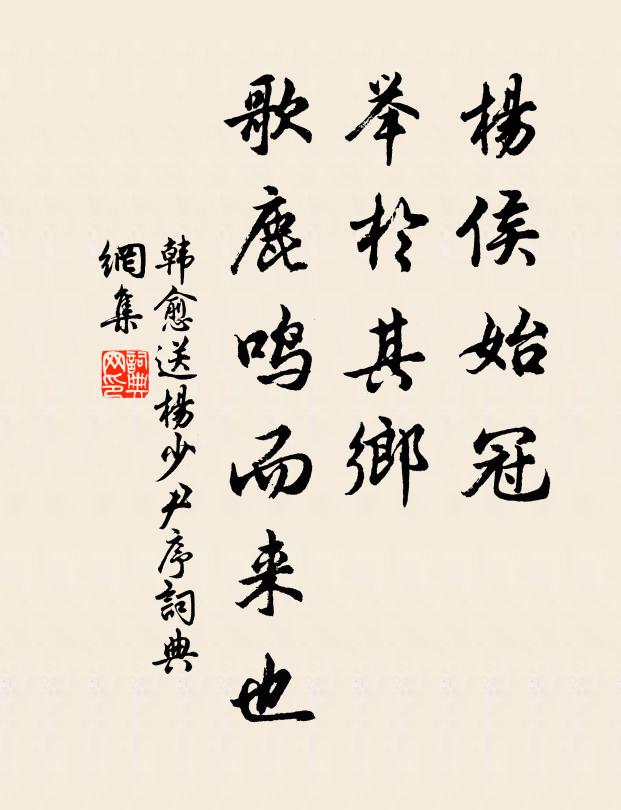 楊侯始冠
举於其鄉
歌鹿鸣而来也
韩愈送楊少尹序詞典
網集
詞典
网印